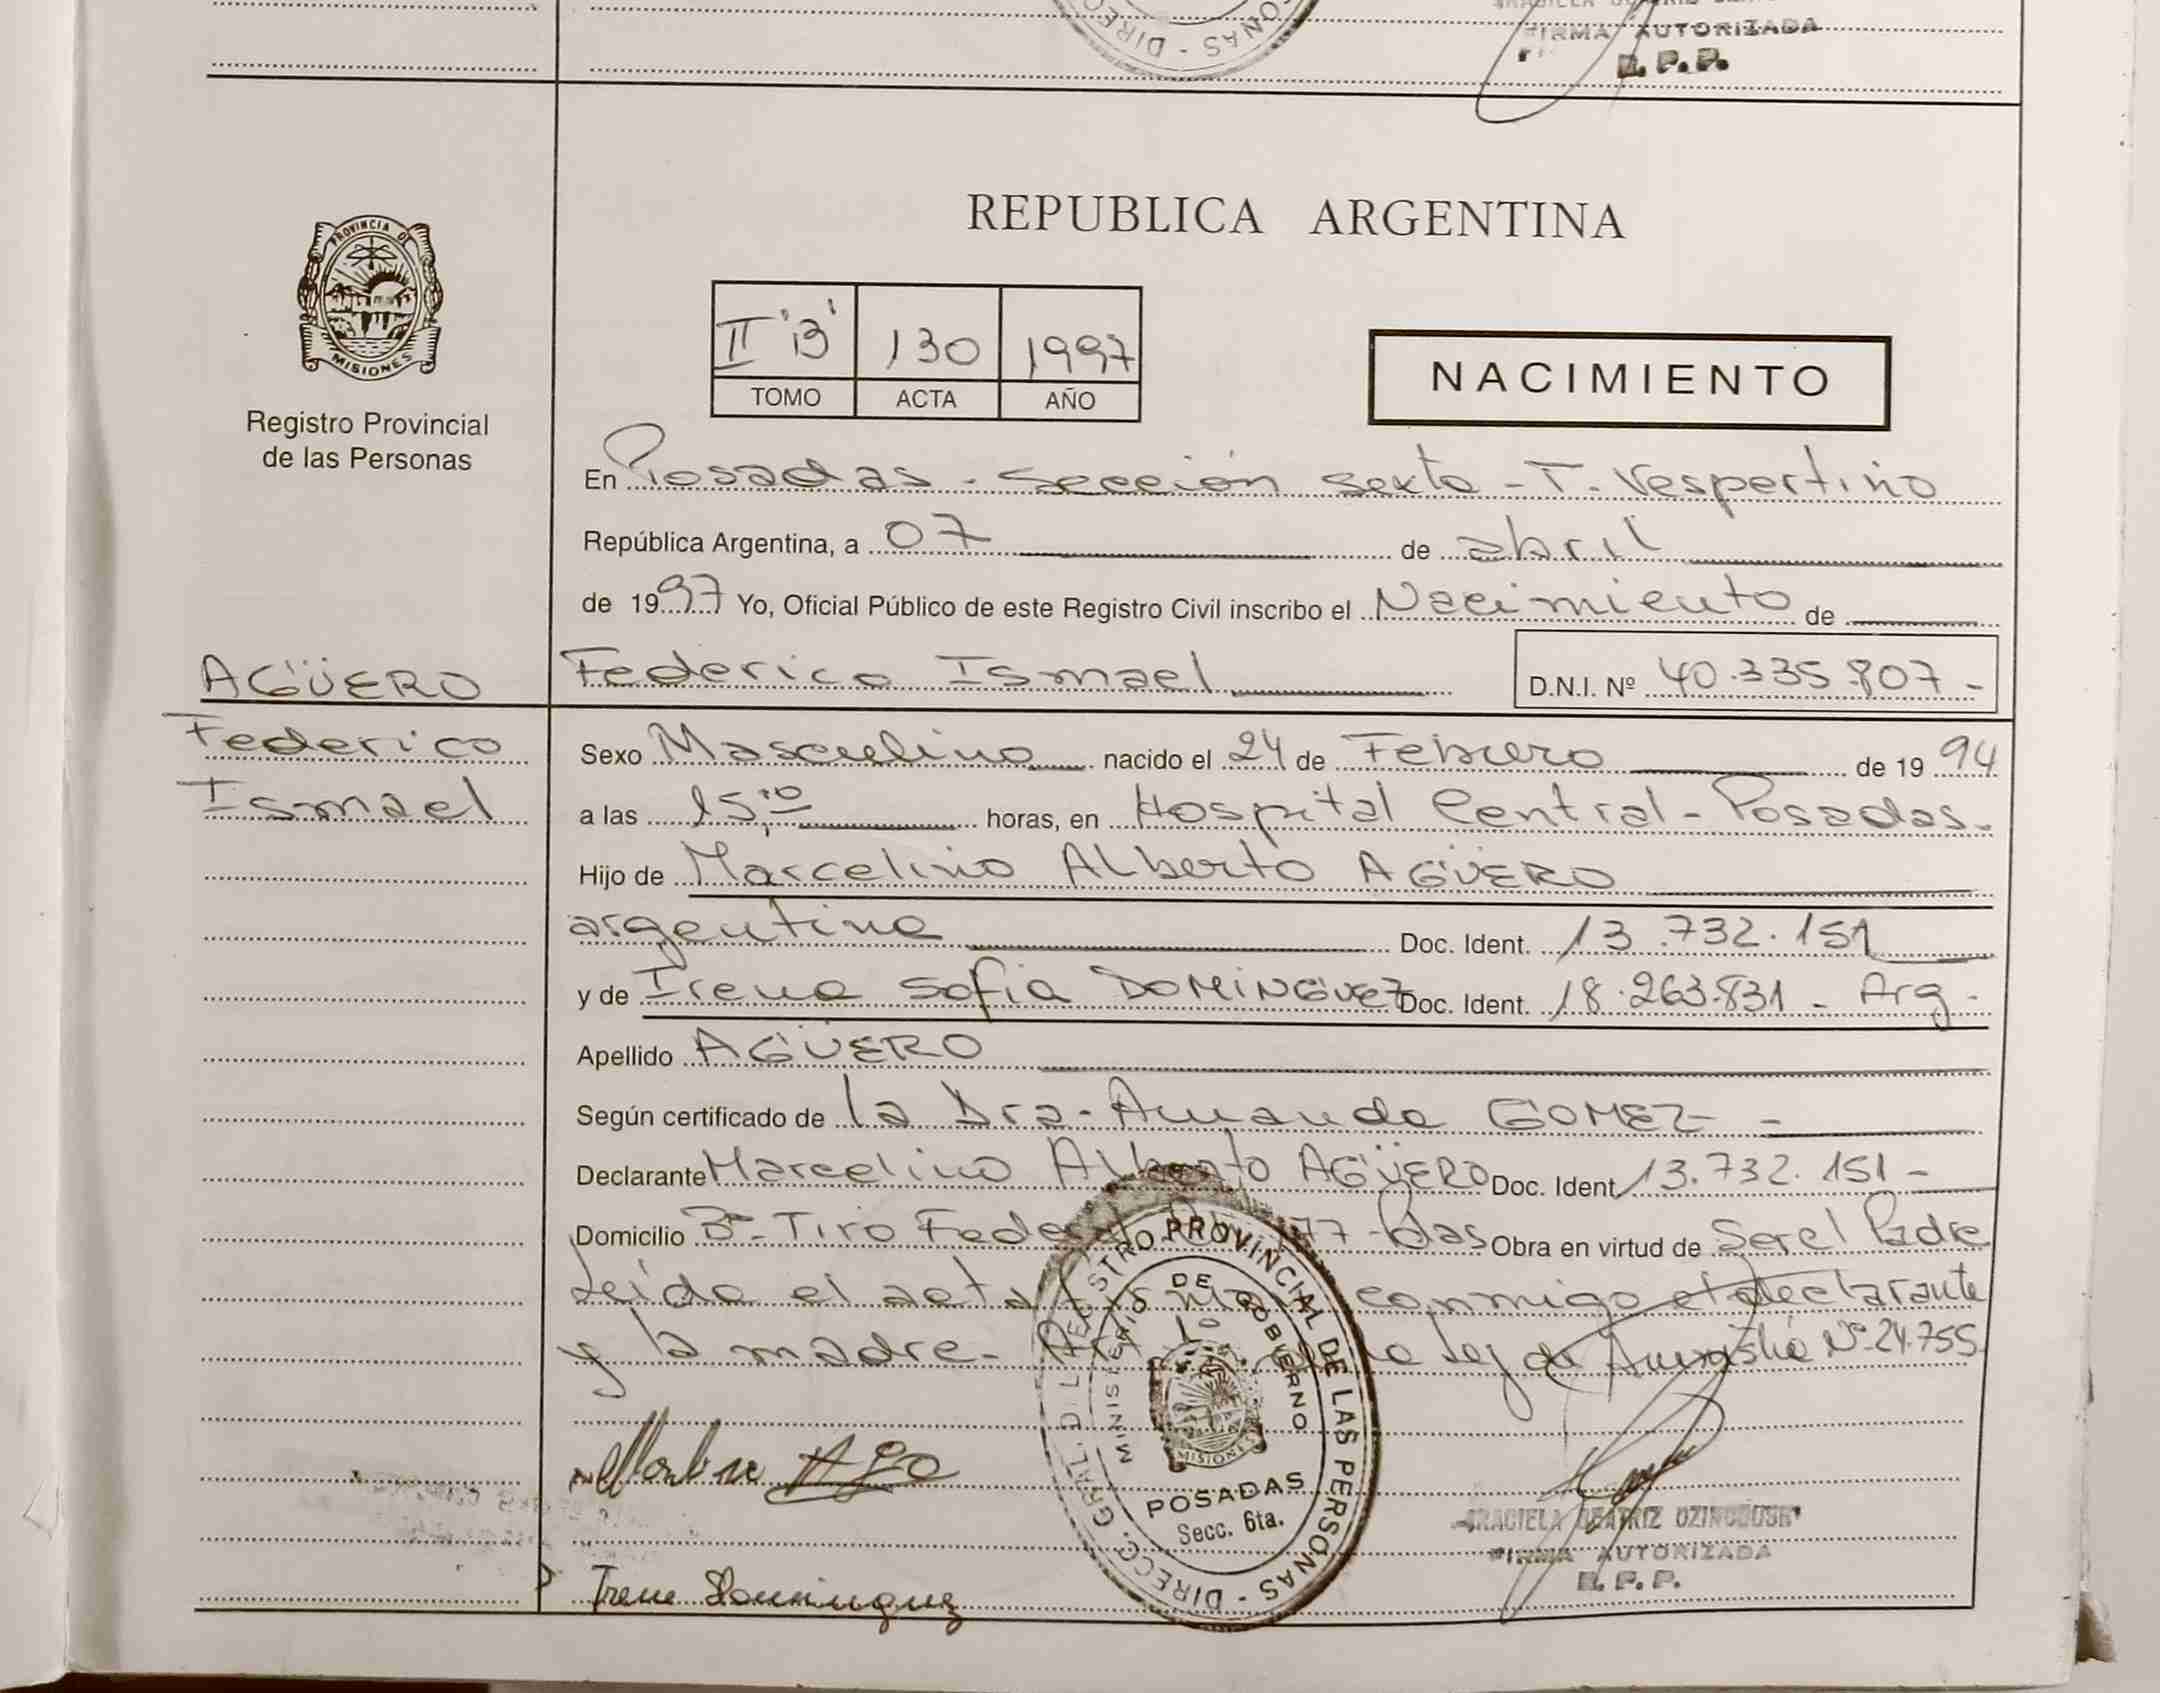 DIREC
ONAS - DIREC
FIRMA AUTORIZADA
R. P. P.
PROVINCIA DE
MISIONES
Registro Provincial
de las Personas
REPUBLICA ARGENTINA
II 'B' 130 1997
TOMO ACTA AÑO
NACIMIENTO
En Posadas - Sección Sexta - T. Vespertino
República Argentina, a 07 de abril
de 1997 Yo, Oficial Público de este Registro Civil inscribo el Nacimiento de
AGÜERO
Federico
Ismael
Federico Ismael D.N.I. Nº 40.335.807 -
Sexo Masculino nacido el 24 de Febrero de 1994
a las 15,10 horas, en Hospital Central - Posadas.
Hijo de Marcelino Alberto AGÜERO
argentino Doc. Ident. 13.732.151
y de Irene Sofia DOMINGUEZ Doc. Ident. 18.263.831 - Arg.
Apellido AGÜERO
Según certificado de la Dra. Amanda GOMEZ -
Declarante Marcelino Alberto AGÜERO Doc. Ident. 13.732.151 -
Domicilio Bº Tiro Federal 77 - Pdas Obra en virtud de Ser el Padre
Leída el acta firman conmigo el declarante
y la madre. Art. 1º Ley de Amnistía Nº 24.755
DIRECC. GRAL. DEL REGISTRO PROVINCIAL DE LAS PERSONAS -
MINISTERIO DE GOBIERNO
MISIONES
POSADAS
Secc. 6ta.
GRACIELA BEATRIZ
FIRMA AUTORIZADA
R. P. P.
Irene Dominguez